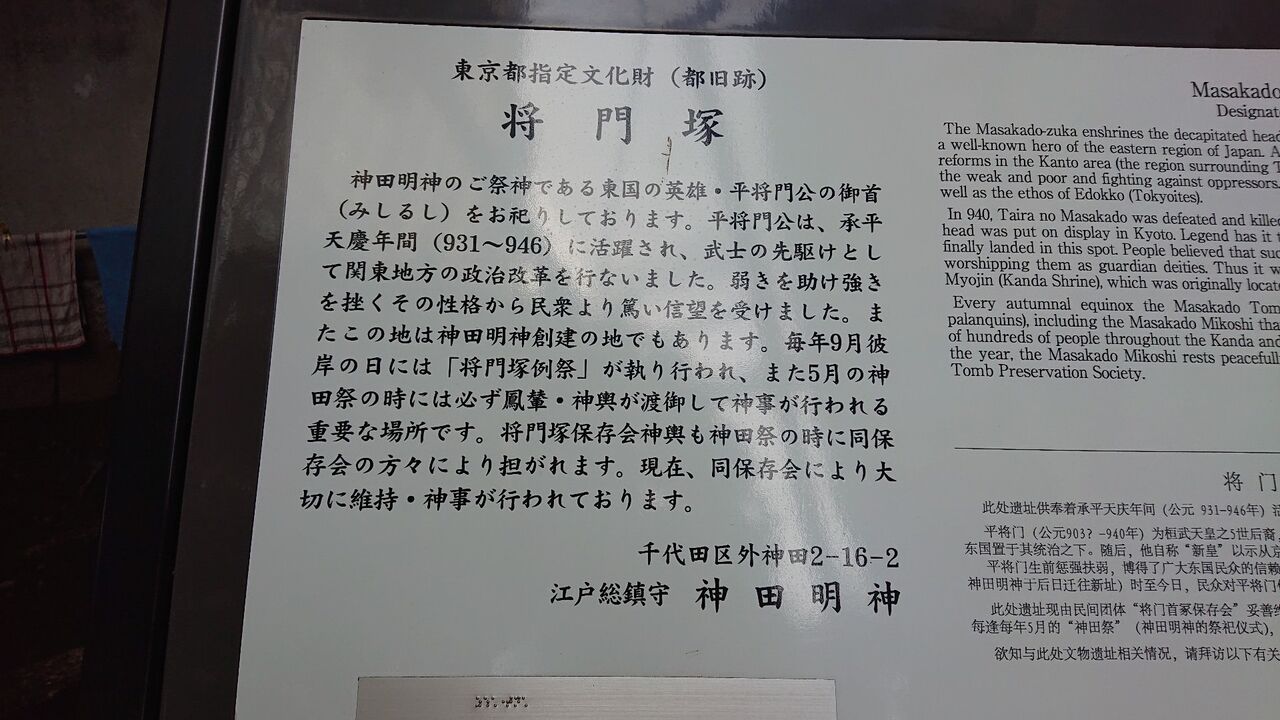 東京都指定文化財（都旧跡）
将門塚
神田明神のご祭神である東国の英雄・平将門公の御首
（みしるし）をお祀りしております。平将門公は、承平
天慶年間（931～946）に活躍され、武士の先駆けとし
て関東地方の政治改革を行ないました。弱きを助け強き
を挫くその性格から民衆より篤い信望を受けました。ま
たこの地は神田明神創建の地でもあります。毎年9月彼
岸の日には「将門塚例祭」が執り行われ、また5月の神
田祭の時には必ず鳳輦・神輿が渡御して神事が行われる
重要な場所です。将門塚保存会神輿も神田祭の時に同保
存会の方々により担がれます。現在、同保存会により大
切に維持・神事が行われております。
千代田区外神田2-16-2
江戸総鎮守 神田明神
Masakado
Designat
The Masakado-zuka enshrines the decapitated head
a well-known hero of the eastern region of Japan. A
reforms in the Kanto area (the region surrounding
the weak and poor and fighting against oppressors.
well as the ethos of Edokko (Tokyoites).
In 940, Taira no Masakado was defeated and kille
head was put on display in Kyoto. Legend has it t
finally landed in this spot. People believed that suc
worshipping them as guardian deities. Thus it w
Myojin (Kanda Shrine), which was originally locate
Every autumnal equinox the Masakado Tom
palanquins), including the Masakado Mikoshi tha
of hundreds of people throughout the Kanda and
the year, the Masakado Mikoshi rests peacefull
Tomb Preservation Society.
将门
此处遗址供奉着承平天庆年间（公元 931-946年）活
平将门（公元903？-940年）为桓武天皇之5世后裔，
东国置于其统治之下。随后，他自称“新皇”以示从京
平将门生前惩强扶弱，博得了广大东国民众的信赖
神田明神于后日迁往新址）时至今日，民众对平将门
此处遗址现由民间团体“将门首冢保存会”妥善维
每逢每年5月的“神田祭”（神田明神的祭祀仪式），
欲知与此处文物遗址相关情况，请拜访以下有关